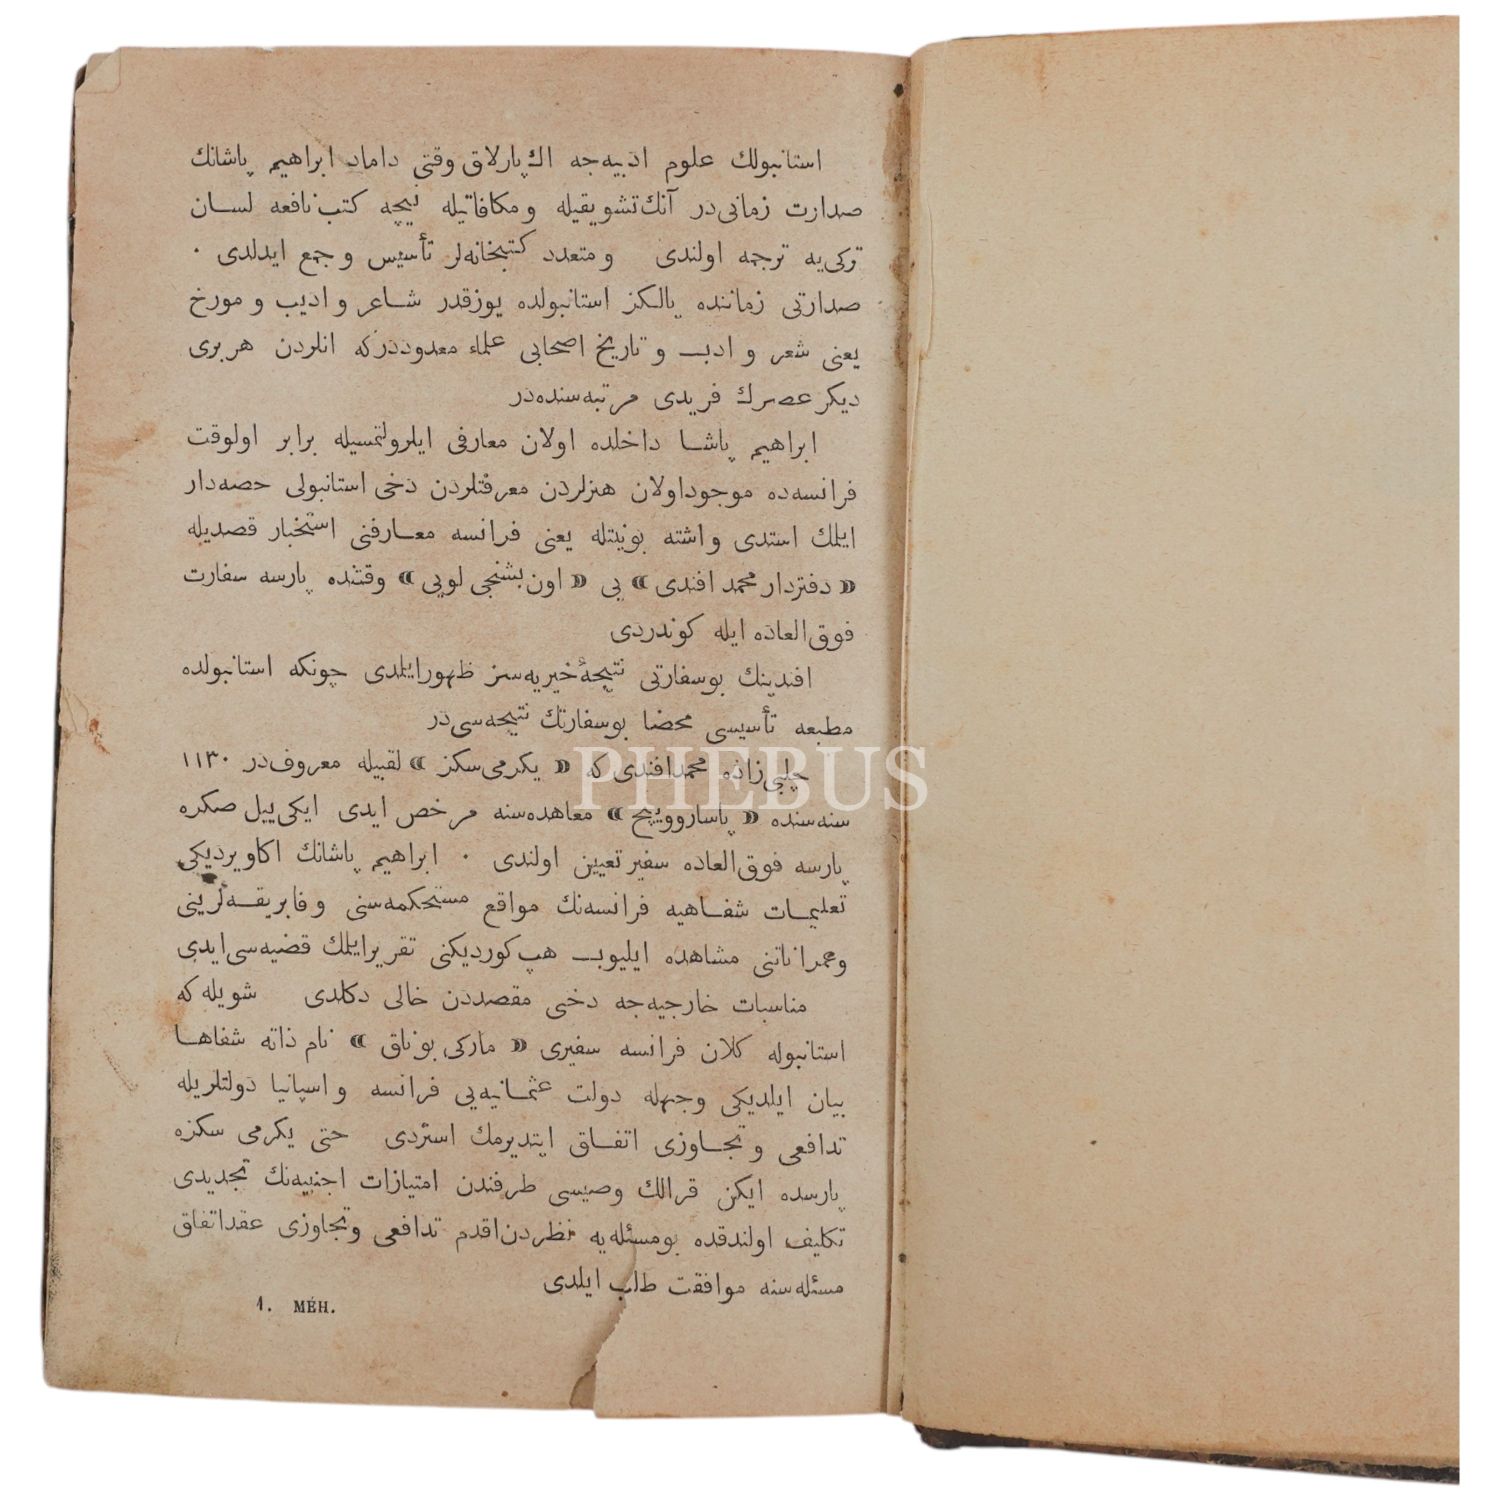 استانبولك علوم ادبیه‌جه اك پارلاق وقتی داماد ابراهیم پاشانك
صدارت زمانی‌در آنك تشویقیله ومكافاتیله نیچه كتب نافعه لسان
تركی‌یه ترجمه اولندی ومتعدد كتبخانه‌لر تأسیس وجمع ایدلدی ٠
صدارتی زماننده یالكز استانبولده یوزقدر شاعر وادیب ومورخ
یعنی شعر وادب وتاریخ اصحابی علماء معدوددركه انلردن هربری
دیكر عصرك فریدی مرتبه‌سنده‌در
ابراهیم پاشا داخلده اولان معارفی ایلرولتمسیله برابر اولوقت
فرانسه‌ده موجوداولان هنرلردن معرفتلردن دخی استانبولی حصه‌دار
ایلك استدی واشته بونیتله یعنی فرانسه معارفنی استخبار قصدیله
« دفتردار محمد افندی » یی « اون بشنجی لویی » وقتنده پارسه سفارت
فوق‌العاده ایله كوندردی
افندینك بوسفارتی نتیجۀ خیریه‌سز ظهورایلدی چونكه استانبولده
مطبعه تأسیسی محضا بوسفارتك نتیجه‌سی‌در
چلبی‌زاده محمدافندی كه « یكرمی‌سكز » لقبیله معروف‌در ١١٣٠
سنه‌سنده « پاساروویچ » معاهده‌سنه مرخص ایدی ایكی‌ییل صكره
پارسه فوق‌العاده سفیر تعیین اولندی ٠ ابراهیم پاشانك اكاویردیكی
تعلیمات شفاهیه فرانسه‌نك مواقع مستحكمه‌سنی وفابریقه‌لرینی
وعمراناتنی مشاهده ایلیوب هپ كوردیكنی تقریرایلك قضیه‌سی‌ایدی
مناسبات خارجیه‌جه دخی مقصددن خالی دكلدی شویله‌كه
استانبوله كلان فرانسه سفیری « ماركی بوناق » نام ذاته شفاها
بیان ایلدیكی وجهله دولت عثمانیه‌یی فرانسه واسپانیا دولتلریله
تدافعی وتجاوزی اتفاق ایتدیرمك استردی حتی یكرمی سكزه
پارسده ایكن قرالك وصیسی طرفندن امتیازات اجنبیه‌نك تجدیدی
تكلیف اولندقده بومسئله‌یه نظردن‌اقدم تدافعی وتجاوزی عقداتفاق
مسئله‌سنه موافقت طلب ایلدی
1. MÉH.
PHEBUS